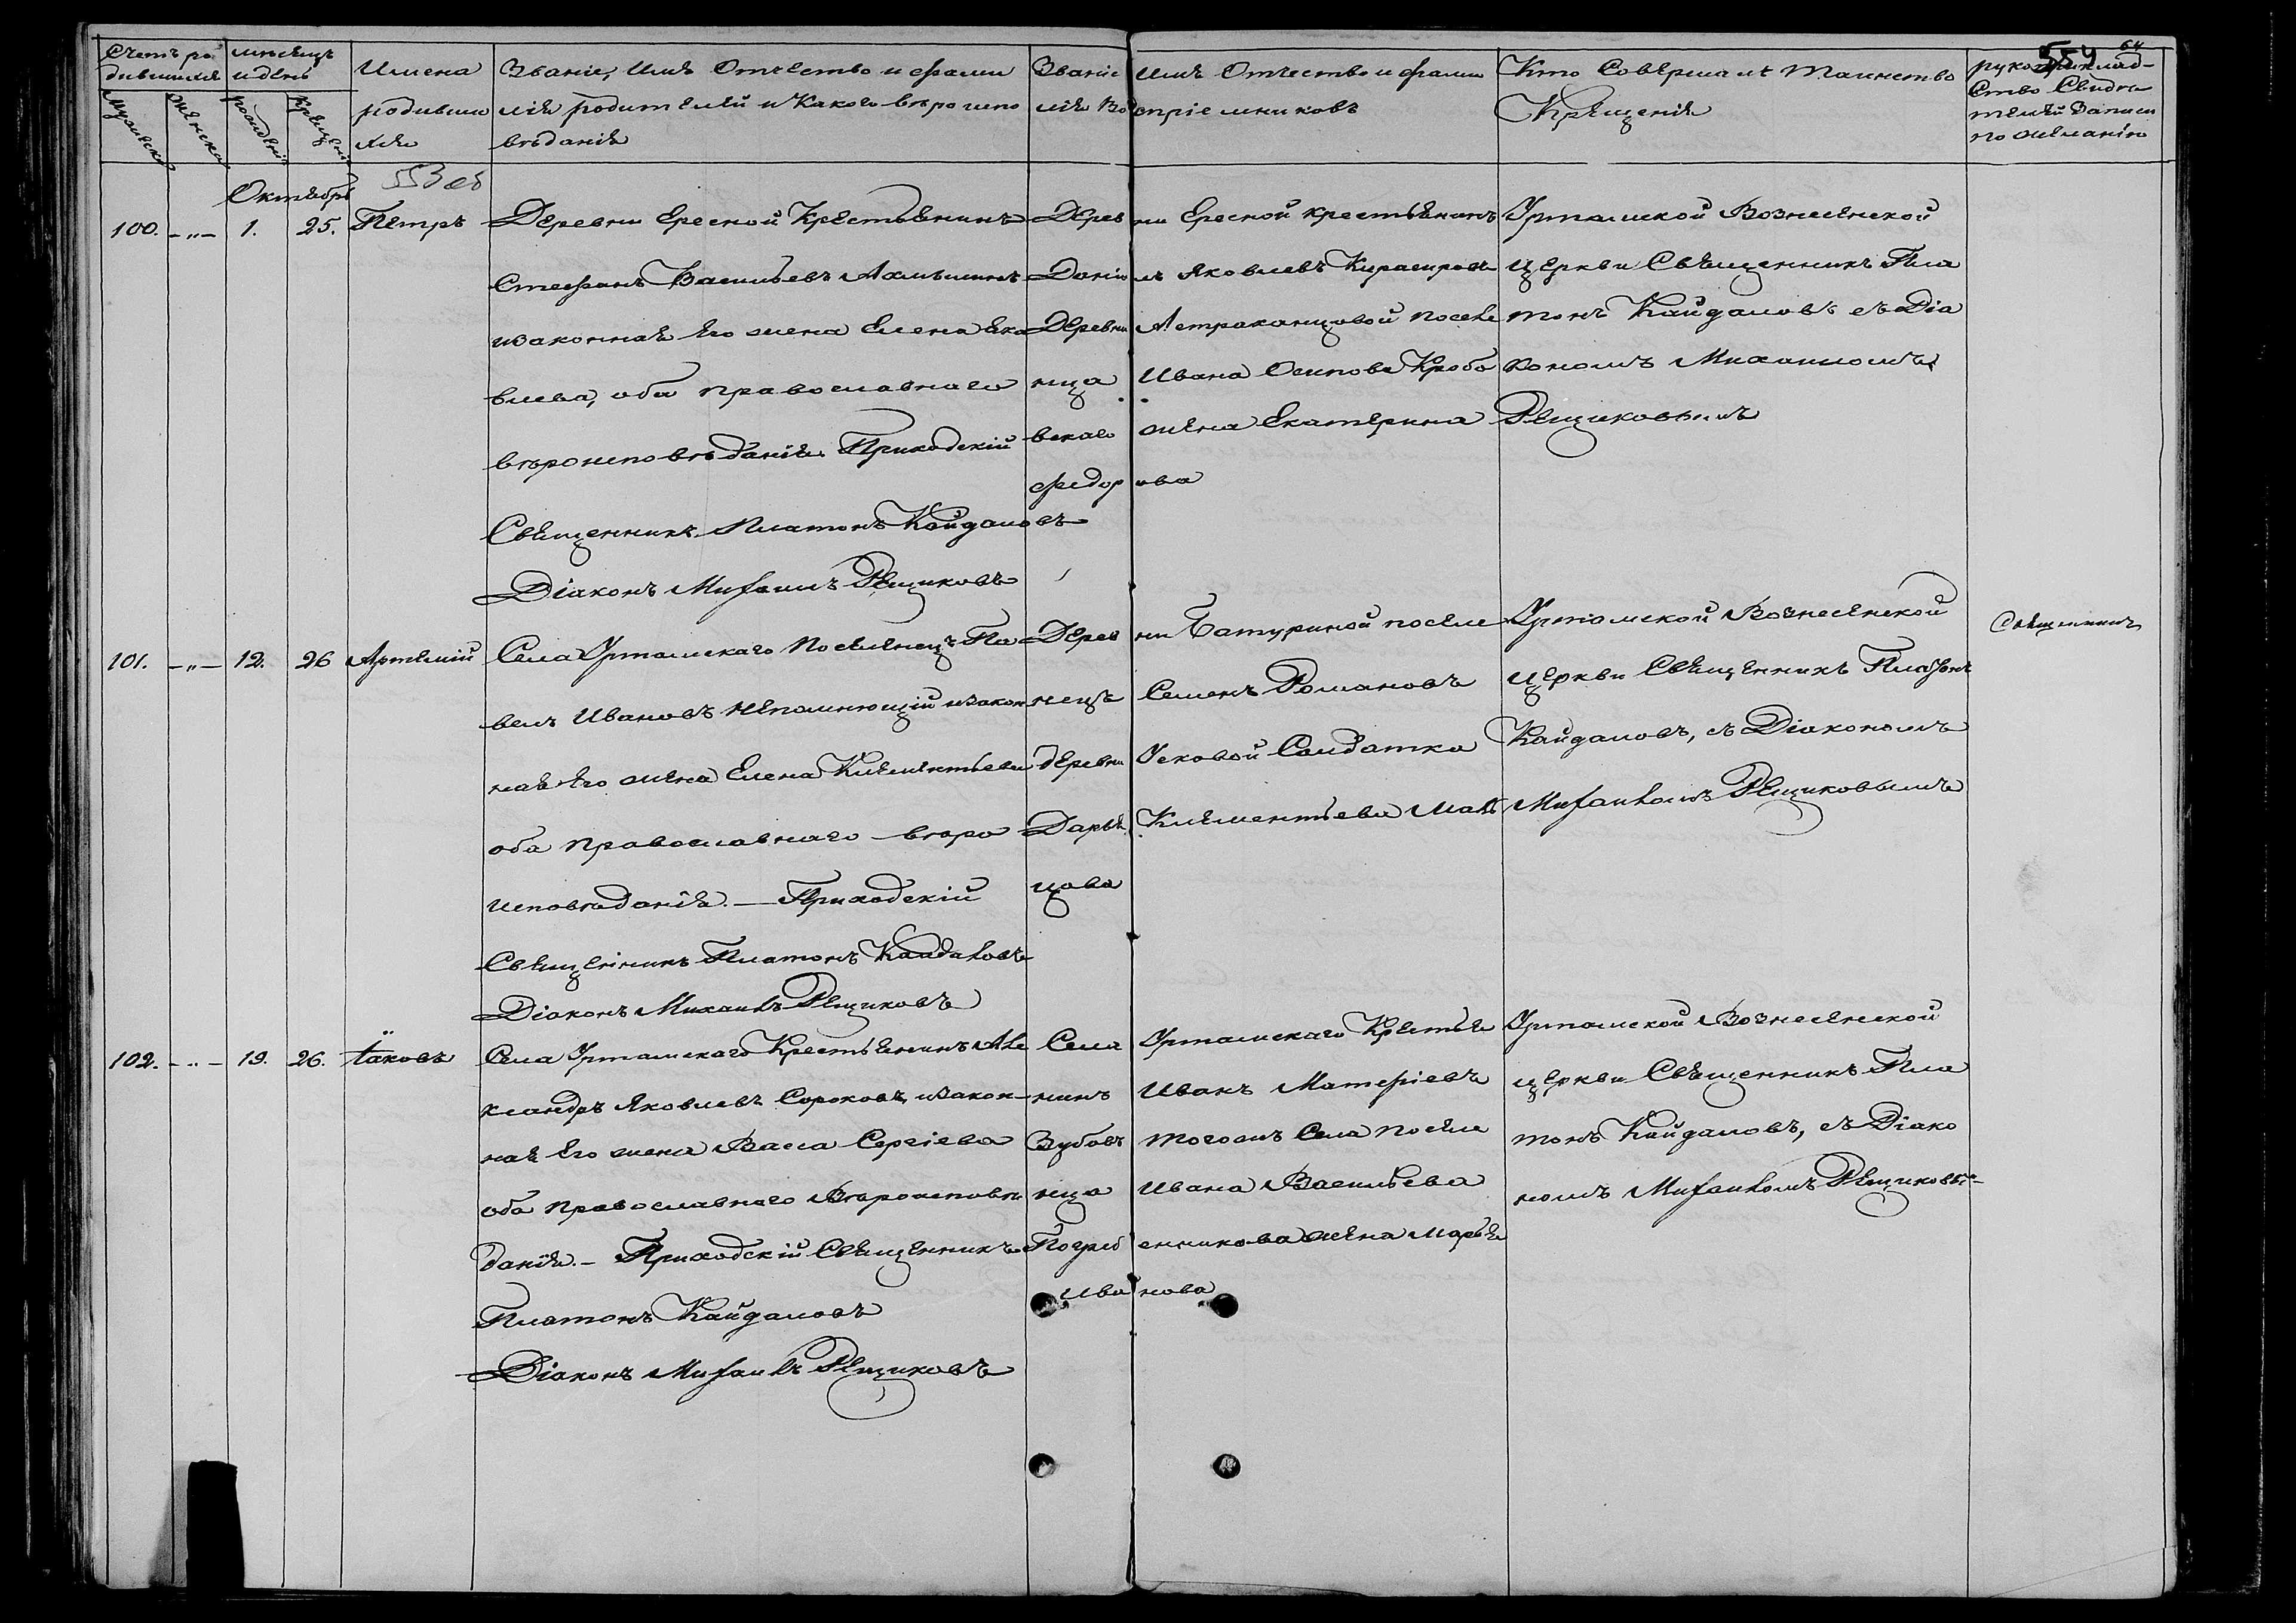 554 64
Счетъ ро
дившихся
мѣсяцъ
и день
Мужеска
Женска
рожденія
крещенія
Имена
родивши
хся
Званіе, Имя Отчество и фами
лія родителей и Какого вѣроиспо
вѣданія
Званіе Имя Отчество и фами
лія Воспріемниковъ
Кто Совершалъ Таинство
Крещенія
рукоприклад-
ство Свидѣ
телей записи
по желанію
553 об
Октябрь
100. -"- 1. 25. Петръ
Деревни Ересной Крестьянинъ
Стефанъ Васильевъ
изаконная Его жена Елена Яко
влева, оба православнаго
вѣроисповѣданія. Приходскій
Священникъ Платонъ Кайдаловъ
Діаконъ Михаилъ Рещиковъ
Деревни Ересной крестьянинъ
Даніилъ Яковлевъ
Деревни Астраканцовой поселе
нца Ивана Осипова Коробо
вскаго жена Екатерина
Федорова
Уртамской Вознесенской
церкви Священникъ Пла
тонъ Кайдаловъ съ Діа
кономъ Михаиломъ
Рещиковымъ
101. -"- 12. 26 Артемій
Села Уртамскаго Поселенецъ Па
велъ Ивановъ Непомнющій изакон
ная Его жена Елена Климентьева
оба православнаго вѣро
исповѣданія. — Приходскій
Священникъ Платонъ Кайдаловъ
Діаконъ Михаилъ Рещиковъ
Деревни Батуриной поселе
нецъ Семенъ Романовъ
деревни Усковой Солдатка
Дарья Климентьева Маль
цова
Уртамской Вознесенской
церкви Священникъ Платонъ
Кайдаловъ, съ Діакономъ
Михаиломъ Рещиковымъ
Священникъ
102. -"- 19. 26. Іаковъ
Села Уртамскаго Крестьянинъ Але
ксандръ Яковлевъ Сороковъ, изакон-
ная Его жена Васса Сергіева
оба православнаго Вѣроисповѣ
данія. – Приходскій Священникъ
Платонъ Кайдаловъ
Діаконъ Михаилъ Рещиковъ
Села Уртамскаго Крестья
нинъ Иванъ Матфіевъ
Зубовъ тогожъ Села поселе
нца Ивана Васильева
Погребенникова жена Марья
Иванова
Уртамской Вознесенской
церкви Священникъ Пла
тонъ Кайдаловъ, съ Діако
номъ Михаиломъ Рещиковы-